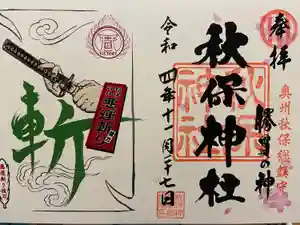 奉拝
奥州秋保総鎮守
勝負の神
秋保神社
令和四年十一月二十七日
斬
悪運